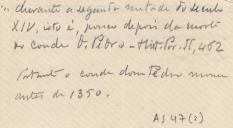 durante a segunda metade do seculo
XIV, isto é, pouco depois da morte
do conde D. Pedro - Hist. Por. II, 462
Portanto o conde dom Pedro morreu
antes de 1350.
AS 47 (2)